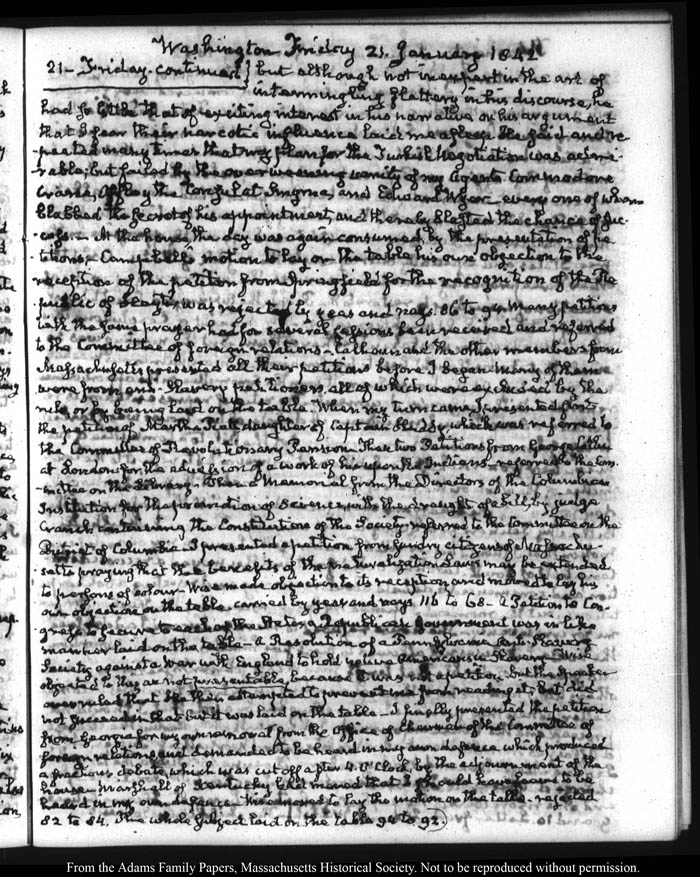 Washington Friday 21. January 1842
21 – Friday – continued } but although not inexpert in the art of
intermingling flattery in his discourse, he
had so little that of exciting interest in his narrative or his argument
that I fear their narcotic influence laid me asleep. He said and re
-peated many times that my plan for the Turkish Negotiation was admi-
-rable; but failed by the overweening vanity of my Agents Commodore
Crane, Offley the Consul at Smyrna, and Edward Wyer every one of whom
blabbed the secret of his appointment, and thereby blasted the chance of suc-
-cess. – At the house, the day was again consumed by the presentation of pe
-titions – Campbell's motion to lay on the table his own objection to the
reception of the petition from Springfield for the recognition of the Re
-public of Hayti was rejected by yeas and nays. 86 to 94. Many petitions
with the same prayer had for several sessions been received and referred
to the Committee of foreign relations – Calhoun and the other members from
Massachusetts presented all their petitions before I began many of them
were from anti-Slavery petitioners, all of which were excluded by the
rule or by being laid on the table. When my turn came I presented first
the petition of Martha daughter of Captain which was referred to
the Committee of Revolutionary Pensions. Then two Petitions from George Catlin
at London for the of a work of his upon the Indians – referred to the Com-
-mittee on the Library – Then a Memorial from the Directors of the Columbian
Institution for the promotion of Science, with the draught of a bill, by judge
Cranch, containing the Constitution of the Society – referred to the Committee on the
District of Columbia. I presented a petition from sundry citizens of Massachu
-setts praying that the benefits of the naturalization Laws may be extended
to persons of colour – Wise made objection to its reception and moved to lay his
own objection on the table carried by yeas and nays 116 to 68 – a Petition to Con-
-gress to secure to each of the States, a Republican government was in like
manner laid on the table – a Resolution of a Pennsylvania Anti-Slavery
Society against a War with England to hold native Americans in Slavery – Wise
objected to this as not presentable, because it was not a petition. but the Speaker
overruled that. He then attempted to prevent me from reading it; but did
not succeed in that but it was laid on the table – I finally presented the petition
from Georgia for my own removal from the Office of Chairman of the Committee of
foreign relations, and demanded to be heard in my own defence which produced
a fractious debate, which was cut off after 4. O'Clock, by the adjournment of the
house – Marshall of Kentucky had moved that I should have leave to be
heard in my own defence Wise moved to lay the motion on the table – rejected
82 to 84. The whole subject laid on the table 94 to 92.
From the Adams Family Papers, Massachusetts Historical Society. Not to be reproduced without permission.